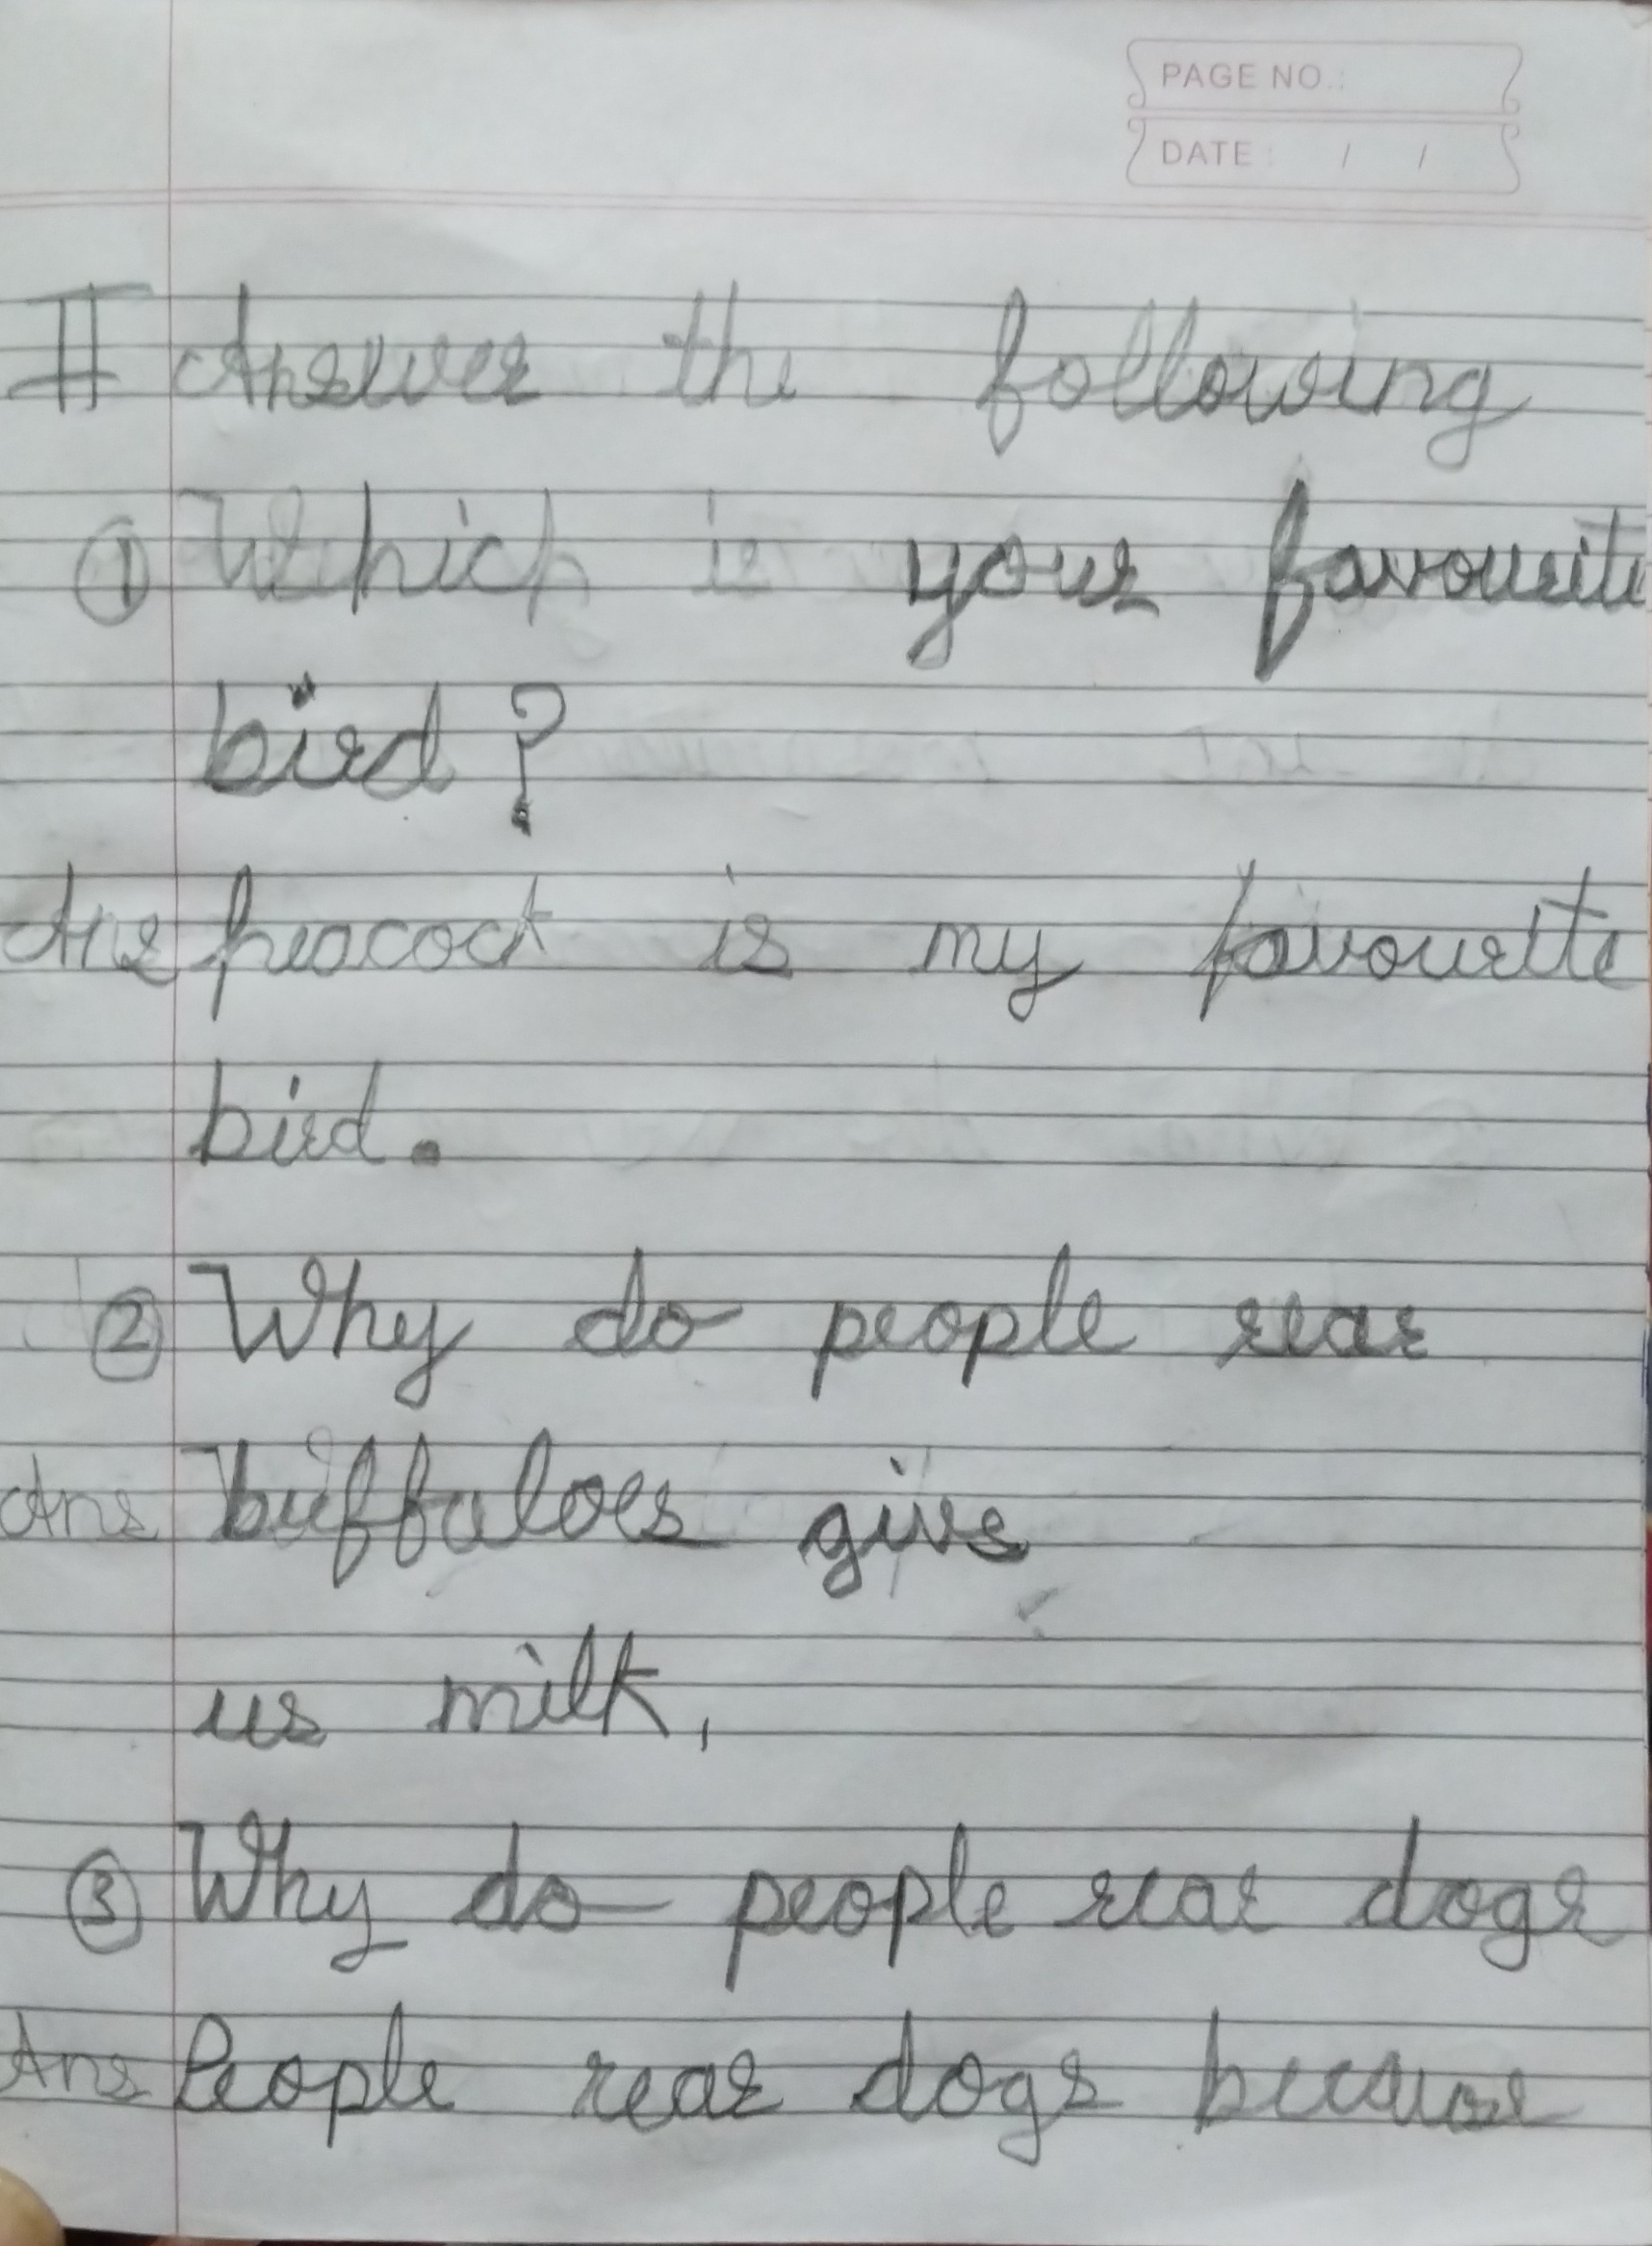 PAGE NO.:
DATE : / /
II Answer the following
① Which is your favourite
bird ?
Ans peacock is my favourite
bird.
② Why do people rear
Ans buffaloes give
us milk,
③ Why do people rear dogs
Ans People rear dogs because